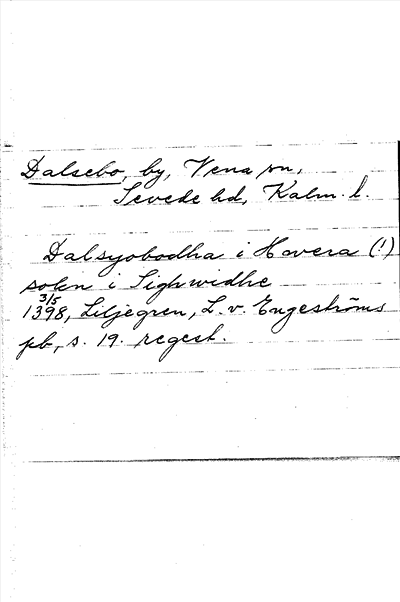 Dalsebo, by, Vena sn,
Sevede hd, Kalm. l.
Dalsyobodha i Hovera (!)
sokn i Sighwidhe
3/5
1398, Liljegren, L. v. Engeströms
pb, s. 19. regest.